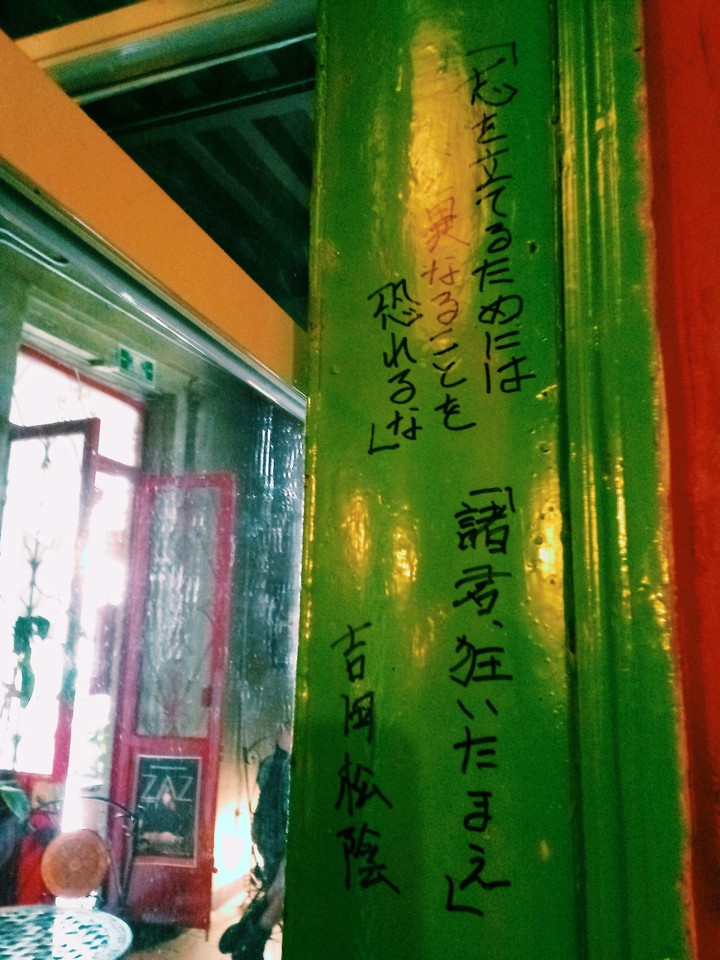 「志を立てるためには
異なることを
恐れるな」
「諸君、狂いたまえ」
吉田松陰
ZAZ